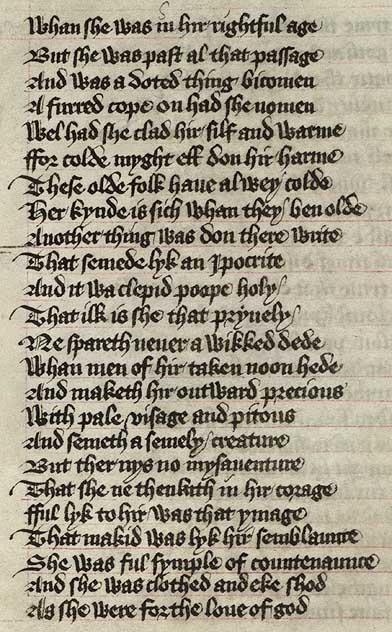 Whan she was in hir rightful age
But she was past al that passage
And was a doted thing bicomen
A furred cope on had she nomen
Wel had she clad hir silf and warme
ffor colde myght ell don hir harme
These olde folk haue alwey colde
Her kynde is sich whan they ben olde
Another thing was don there write
That semede lyk an Ipocrite
And it wa clepid poope holy
That ilk is she that pryuely
Ne spareth neuer a wikked dede
Whan men of hir taken noon hede
And maketh hir outward precious
With pale visage and pitous
And semeth a semely creature
But ther nys no mysauenture
That she ne thenkith in hir corage
fful lyk to hir was that ymage
That makid was lyk hir semblaunce
She was ful symple of countenaunce
And she was clothed and eke shod
As she were for the loue of god